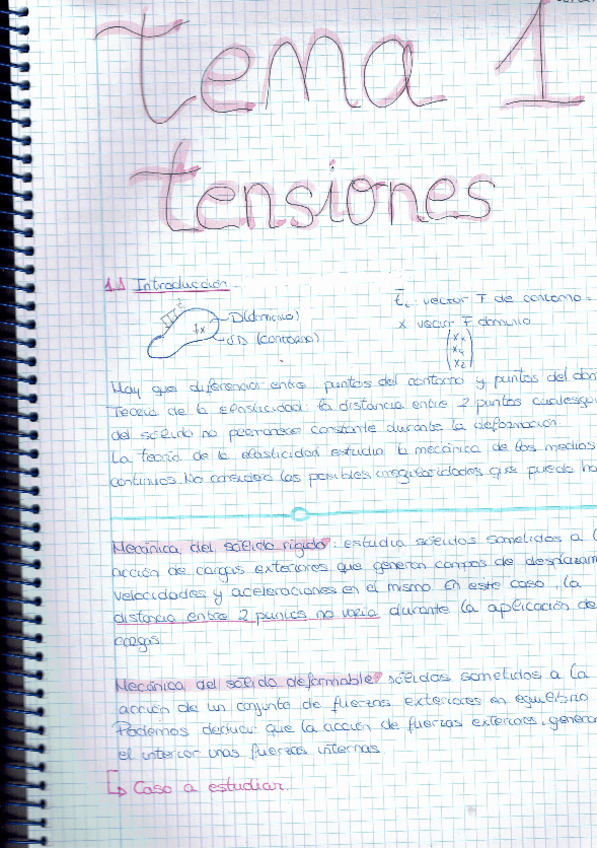 Tema 1
tensiones
1.1 Introducción.
D(dominio)
∂D (contorno)
fx
t̄c: vector F de contorno.
x vector F dominio
Hay que diferenciar entre puntos del contorno y puntos del dom
Teoría de la elasticidad: la distancia entre 2 puntos cualesqui
del sólido no permanece constante durante la deformación.
La teoría de la elasticidad estudia la mecánica de los medios
continuos. No considera las posibles irregularidades que pueda ha
Mecánica del sólido rígido: estudia sólidos sometidos a l
acción de cargas exteriores que generan campos de desplazam
velocidades y aceleraciones en el mismo. En este caso, la
distancia entre 2 puntos no varía durante la aplicación de
cargas.
Mecánica del sólido deformable: sólidos sometidos a la
acción de un conjunto de fuerzas exteriores en equilibrio
Podemos deducir que la acción de fuerzas exteriores, genera
el interior unas fuerzas internas.
↳ Caso a estudiar.